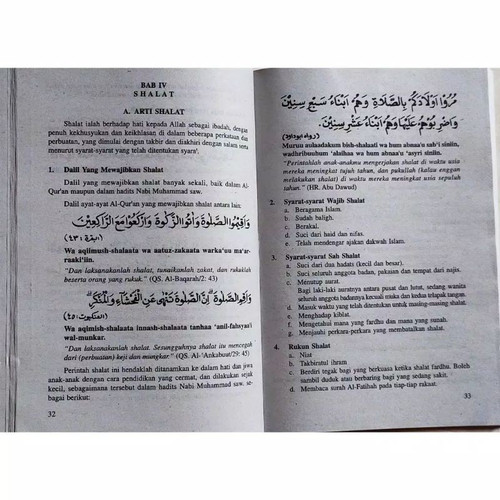 BAB IV
SHALAT
A. ARTI SHALAT
Shalat ialah berhadap hati kepada Allah sebagai ibadah, dengan
penuh kekhusyukan dan keikhlasan di dalam beberapa perkataan dan
perbuatan, yang dimulai dengan takbir dan diakhiri dengan salam serta
menurut syarat-syarat yang telah ditentukan syara'.
1. Dalil Yang Mewajibkan Shalat
Dalil yang mewajibkan shalat banyak sekali, baik dalam Al-
Qur'an maupun dalam hadits Nabi Muhammad saw.
Dalil ayat-ayat Al-Qur'an yang mewajibkan shalat antara lain:
وَاَقِيْمُوا الصَّلٰوةَ وَاٰتُوا الزَّكٰوةَ وَارْكَعُوْا مَعَ الرَّاكِعِيْنَ
(البقرة : ٤٣)
Wa aqiimush-shalaata wa aatuz-zakaata warka'uu ma'ar-
raaki'iin.
"Dan laksanakanlah shalat, tunaikanlah zakat, dan rukuklah
beserta orang yang rukuk." (QS. Al-Baqarah/2: 43)
وَاَقِمِ الصَّلٰوةَ اِنَّ الصَّلٰوةَ تَنْهٰى عَنِ الْفَحْشَآءِ وَالْمُنْكَرِ
(العنكبوت : ٤٥)
Wa aqimish-shalaata innash-shalaata tanhaa 'anil-fahsyaa'i
wal-munkar.
"Dan laksanakanlah shalat. Sesungguhnya shalat itu mencegah
dari (perbuatan) keji dan mungkar." (QS. Al-'Ankabuut/29: 45)
Perintah shalat ini hendaklah ditanamkan ke dalam hati dan jiwa
anak-anak dengan cara pendidikan yang cermat, dan dilakukan sejak
kecil, sebagaimana tersebut dalam hadits Nabi Muhammad saw. se-
bagai berikut:
32
مُرُوْا اَوْلَادَكُمْ بِالصَّلَاةِ وَهُمْ اَبْنَاءُ سَبْعِ سِنِيْنَ
وَاضْرِبُوْهُمْ عَلَيْهَا وَهُمْ اَبْنَاءُ عَشْرِ سِنِيْنَ
(رواه ابوداود)
Muruu aulaadakum bish-shalaati wa hum abnaa'u sab'i siniin,
wadhribuuhum 'alaihaa wa hum abnaa'u 'asyri siniin.
"Perintahlah anak-anakmu mengerjakan shalat di waktu usia
mereka meningkat tujuh tahun, dan pukullah (kalau enggan
melakukan shalat) di waktu mereka meningkat usia sepuluh
tahun." (HR. Abu Dawud)
2. Syarat-syarat Wajib Shalat
a. Beragama Islam.
b. Sudah baligh.
c. Berakal.
d. Suci dari haid dan nifas.
e. Telah mendengar ajakan dakwah Islam.
3. Syarat-syarat Sah Shalat
a. Suci dari dua hadats (kecil dan besar).
b. Suci seluruh anggota badan, pakaian dan tempat dari najis.
c. Menutup aurat.
Bagi laki-laki auratnya antara pusat dan lutut, sedang wanita
seluruh anggota badannya kecuali muka dan kedua telapak tangan.
d. Masuk waktu yang telah ditentukan untuk masing-masing shalat.
e. Menghadap kiblat.
f. Mengetahui mana yang fardhu dan mana yang sunah.
g. Menjauhi perkara-perkara yang membatalkan shalat.
4. Rukun Shalat
a. Niat
b. Takbiratul ihram
c. Berdiri tegak bagi yang berkuasa ketika shalat fardhu. Boleh
sambil duduk atau berbaring bagi yang sedang sakit.
d. Membaca surah Al-Fatihah pada tiap-tiap rakaat.
33